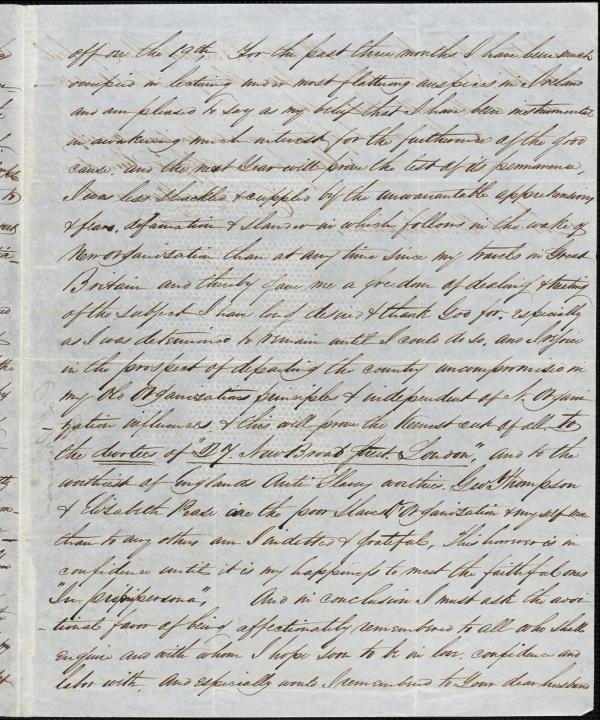 off on the 19th, For the past three months I have been much
occupied in lecturing under most flattering auspices in Ireland
and am pleased to say as my belief that I have been instrumental
in awakening much interest for the furtherance of the good
cause, and the next Year will prove the test of its permanence,
I was less shackled & crippled by the unwarrantable apprehensions
& fears, defamation & slander in which follows in the wake of
New Organization than at any time since my travels in Great
Britain and thereby gave me a freedom of dealing & treating
of the subject I have long desired & thank God for, especially
as I was determined to remain until I could do so, and I rejoice
in the prospect of departing the country uncompromise in
my Old Organizations principle & independent of N. Organi
zation influences & this will prove the keenest cut of all, to
the devotees of "27 New Broad Street London", and to the
worthiest of England Anti Slavery worthies. Geo. Thompson
& Elizabeth Pease are the poor Slaves, Organization & my self more
than to any others am I indebted & grateful, This however is in
confidence until it is my happiness to meet the faithful ones
"In propipersona", And in conclusion I must ask the addi
tional favor of being affectionately remembered to all who shall
enquire and with whom I hope soon to be in love, confidence and
labor with, And especially would I remembered to Your dear husband